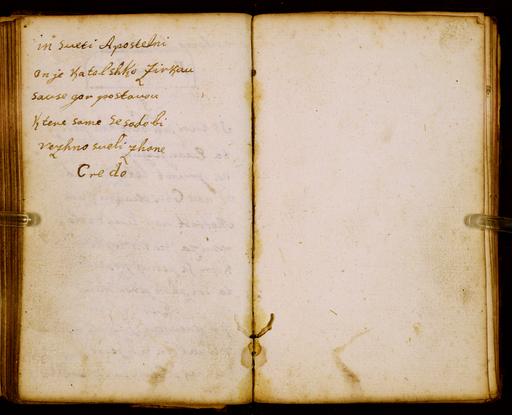 in sueti Apostelni
on je Katolshko Zirkau
sause gor postavou
Ktere some se sodobi
vezhno sueli zhone
Credo